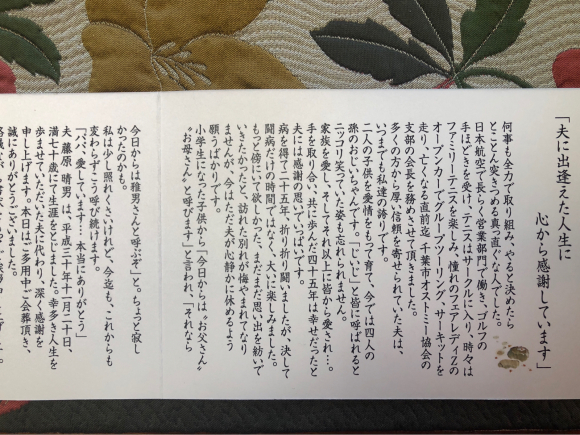 「夫に出逢えた人生に
心から感謝しています」
何事も全力で取り組み、やると決めたら
とことん突きつめる真っ直ぐな人でした。
日本航空で長らく営業部門で働き、ゴルフの
手ほどきを受け、テニスはサークルに入り、時々は
ファミリーテニスを楽しみ、憧れのフェアレディZの
オープンカーでグループツーリング、サーキットを
走り、亡くなる直前迄、千葉市オストミー協会の
支部の会長を務めさせて頂きました。
多くの方から厚い信頼を寄せられていた夫は、
いつまでも私達の誇りです。
二人の子供を愛情をもって育て、今では四人の
孫のおじいちゃんです。「じぃじ」と皆に呼ばれると
ニッコリ笑っていた姿も忘れられません。
家族を愛し、そしてそれ以上に皆から愛され…。
手を取り合い、共に歩んだ四十五年は幸せだったと
夫には感謝の思いでいっぱいです。
病を得て二十五年、折り折り闘いましたが、決して
闘病だけの時間ではなく、大いに楽しみました。
もっと傍にいて欲しかった、まだまだ思い出を紡いで
いきたかったと、訪れた別れが悔やまれてなり
ませんが、今はただ夫が心静かに休めるよう
願うばかりです。
小学生になった子供から「今日からは〝お父さん〟
〝お母さん〟と呼びます」と言われ、「それなら
今日からは雅男さんと呼ぶぞ」って、ちょっと寂し
かったのかも。
私は少し照れくさいけれど、今迄も、これからも
変わらずこう呼び続けます。
「パパ、愛しています…本当にありがとう」
夫 藤原 晴男は、平成三十年十一月二十日、
満七十歳にて生涯をとじました。幸多き人生を
歩ませていただいた夫に代わり、深く感謝を
申し上げます。本日はご多用中ご会葬頂き、
誠にありがとうございました。